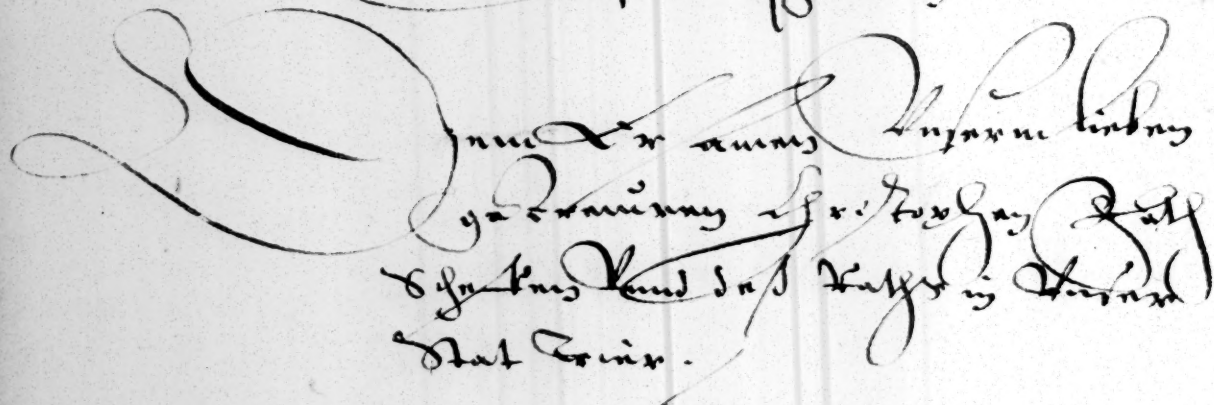 Dem Ersamen Vnserm lieben
getrewen Christophen Rath
Schencken Vnnd des Raths in Vnser
Stat Trier.